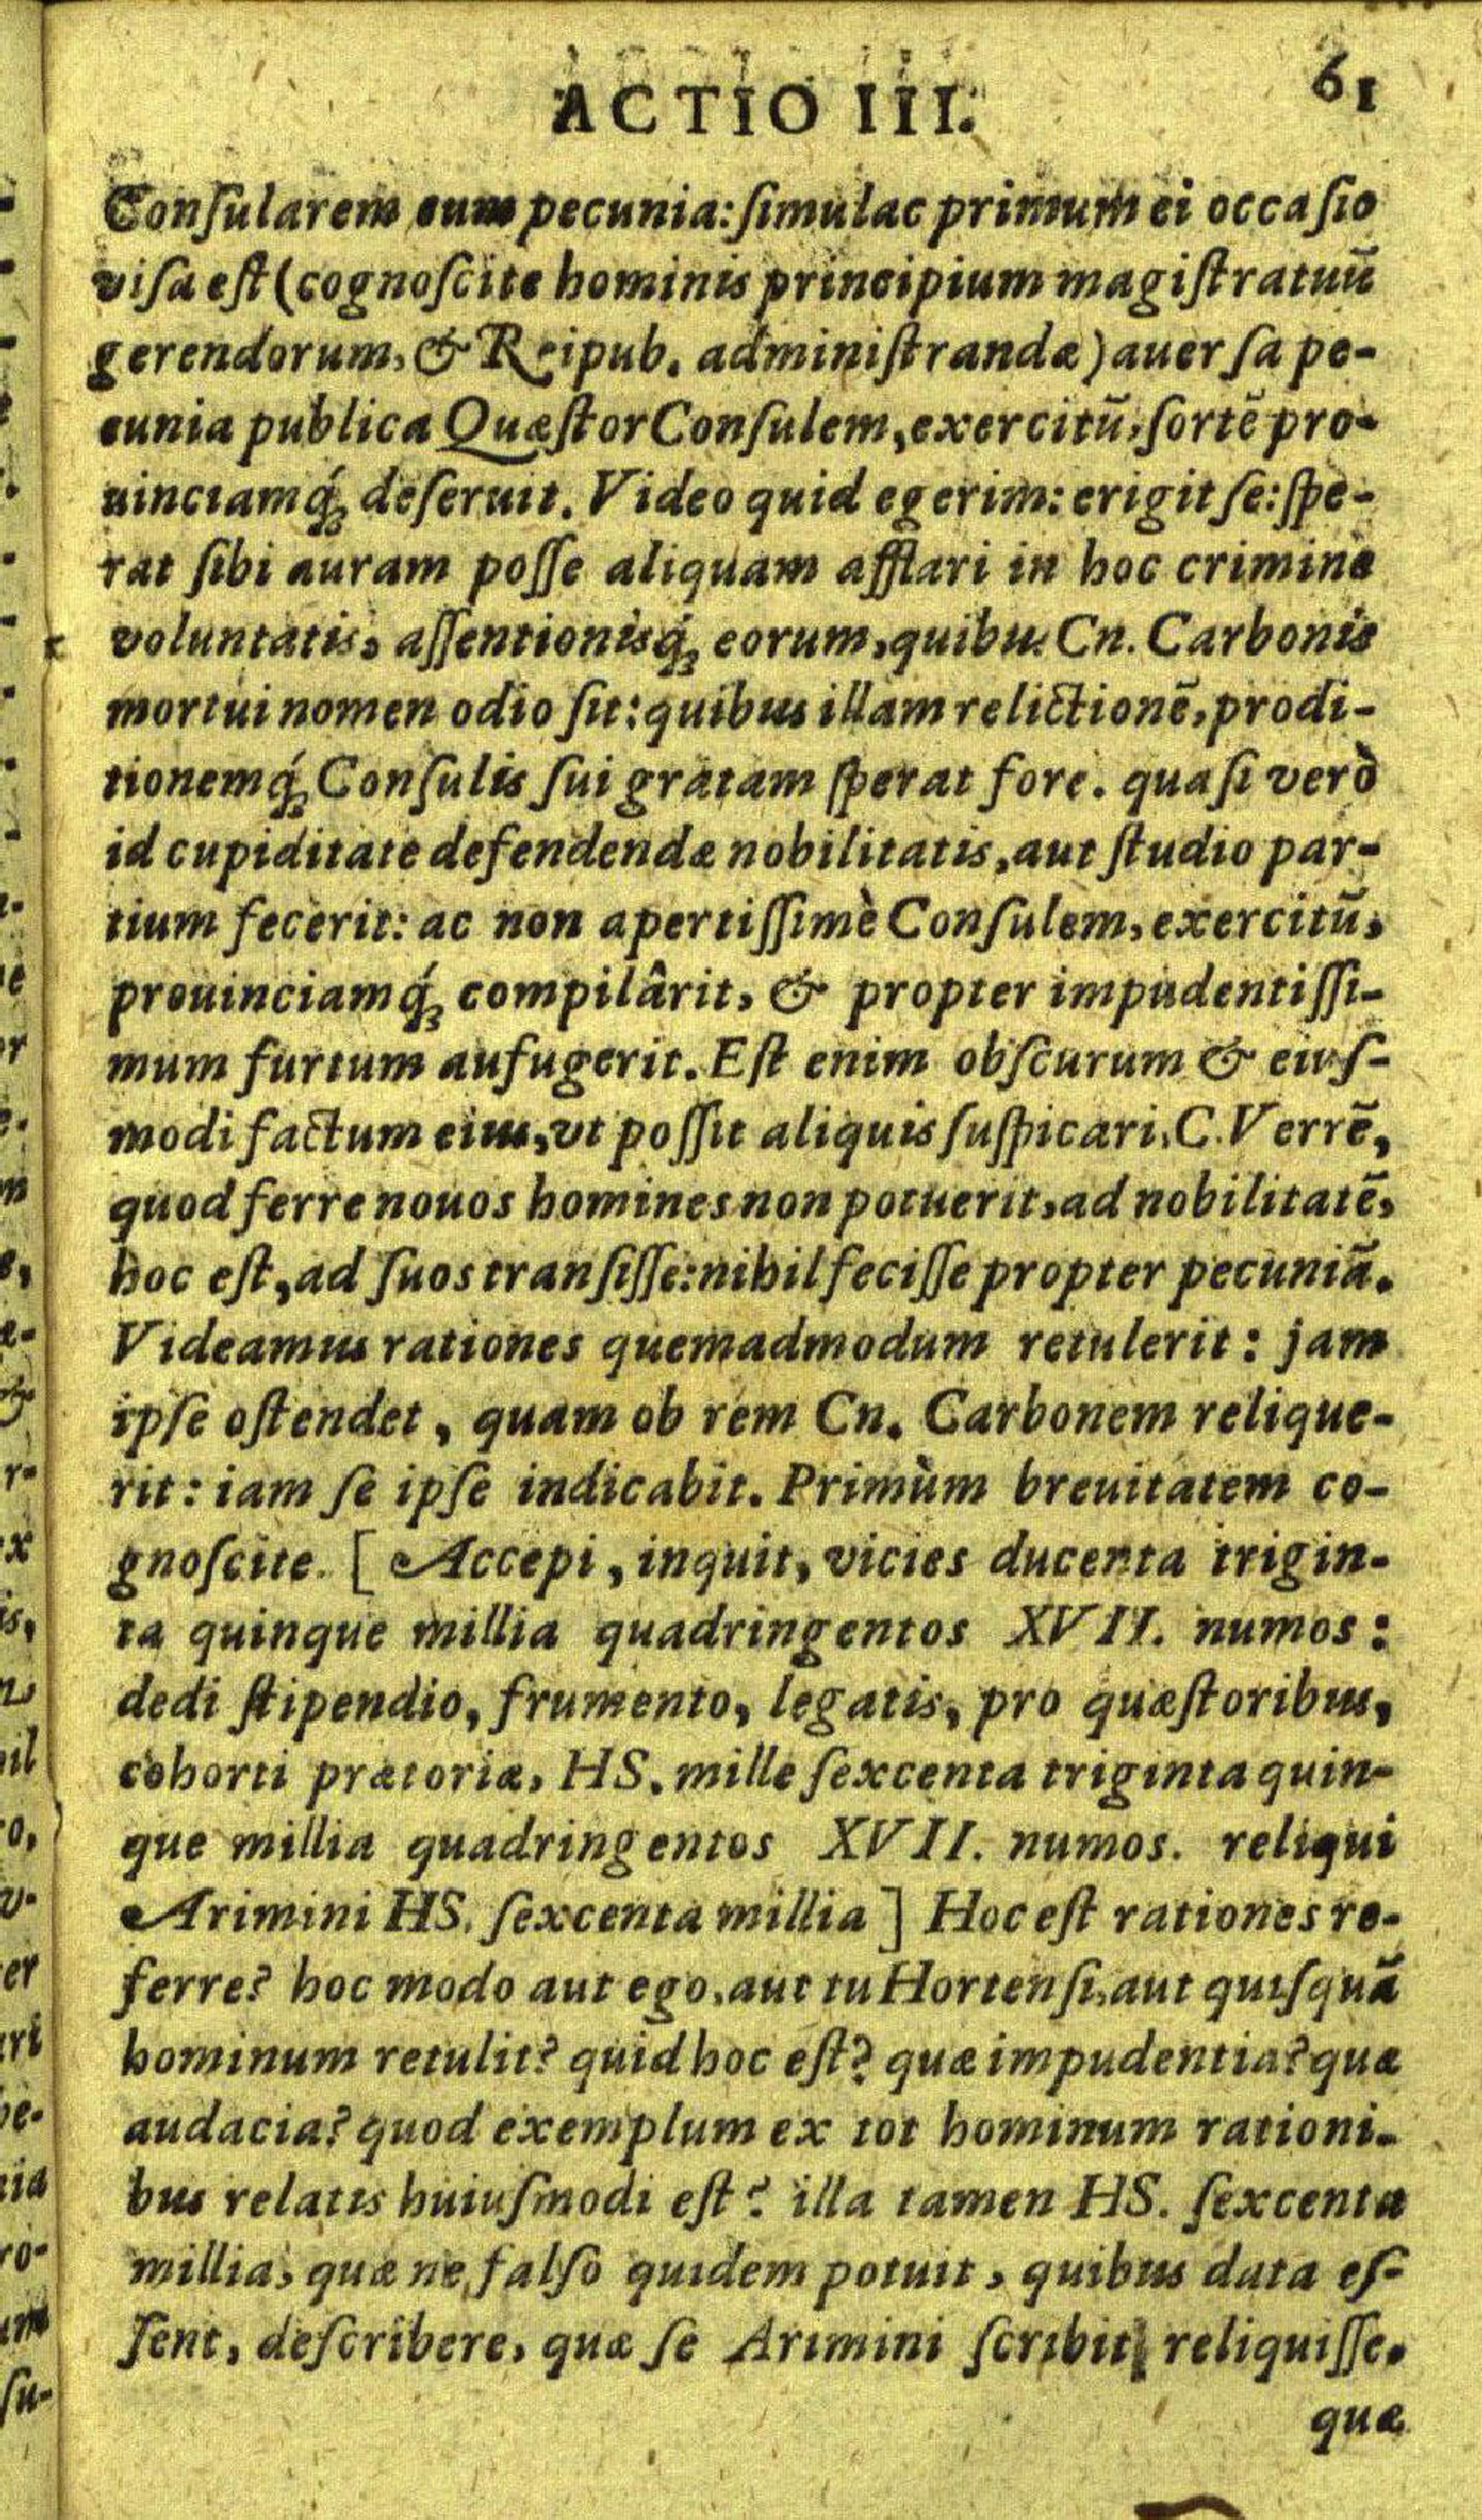 ACTIO III. 61
Conſularem cum pecunia: ſimulac primum ei occaſio
viſa eſt (cognoſcite hominis principium magiſtratuū
gerendorum, & Reipub. adminiſtrandæ) auerſa pe-
cunia publica Quæſtor Conſulem, exercitū, ſortē pro-
uinciamq́; deſeruit. Video quid egerim: erigit ſe: ſpe-
rat ſibi auram poſſe aliquam afflari in hoc crimine
voluntatis, aſſentionisq́; eorum, quibus Cn. Carbonis
mortui nomen odio ſit: quibus illam relictionē, prodi-
tionemq́; Conſulis ſui gratam ſperat fore. quaſi verò
id cupiditate defendendæ nobilitatis, aut ſtudio par-
tium fecerit: ac non apertiſſimè Conſulem, exercitū,
prouinciamq́; compilârit, & propter impudentiſſi-
mum furtum aufugerit. Eſt enim obſcurum & eiuſ-
modi factum eius, vt poſſit aliquis ſuſpicari, C. Verrē,
quod ferre nouos homines non potuerit, ad nobilitatē,
hoc eſt, ad ſuos tranſiſſe: nihil feciſſe propter pecuniā.
Videamus rationes quemadmodum retulerit: jam
ipſe oſtendet, quam ob rem Cn. Carbonem relique-
rit: iam ſe ipſe indicabit. Primùm breuitatem co-
gnoſcite. [ Accepi, inquit, vicies ducenta trigin-
ta quinque millia quadringentos XVII. numos:
dedi ſtipendio, frumento, legatis, pro quæſtoribus,
cohorti prætoriæ, HS. mille ſexcenta triginta quin-
que millia quadringentos XVII. numos. reliqui
Arimini HS. ſexcenta millia ] Hoc eſt rationes re-
ferre? hoc modo aut ego, aut tu Hortenſi, aut quiſquā
hominum retulit? quid hoc eſt? quæ impudentia? quæ
audacia? quod exemplum ex tot hominum rationi-
bus relatis huiuſmodi eſt? illa tamen HS. ſexcenta
millia, quæ ne falſo quidem potuit, quibus data eſ-
ſent, deſcribere, quæ ſe Arimini ſcribit reliquiſſe.
quæ